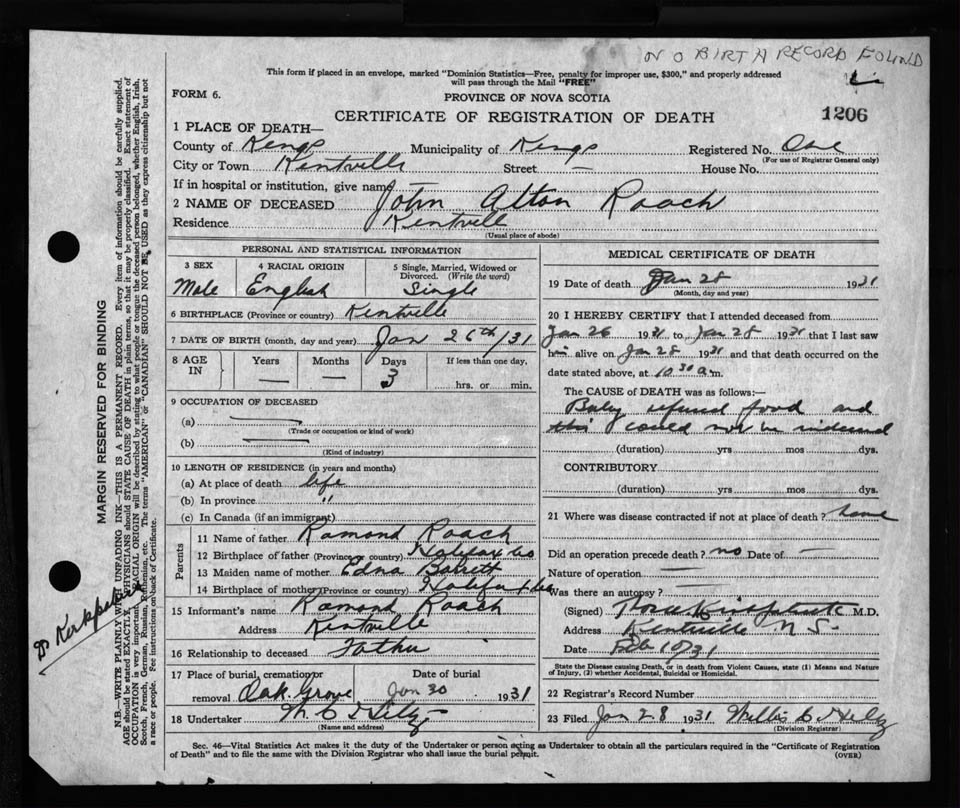 NO BIRTH RECORD FOUND
This form if placed in an envelope, marked "Dominion Statistics—Free, penalty for improper use, $300," and properly addressed
will pass through the Mail "FREE"
FORM 6.
PROVINCE OF NOVA SCOTIA
CERTIFICATE OF REGISTRATION OF DEATH
1206
1 PLACE OF DEATH—
County of Kings Municipality of Kings Registered No. One
(For use of Registrar General only)
City or Town Kentville Street — House No.
If in hospital or institution, give name
2 NAME OF DECEASED John Alton Roach
Residence Kentville
(Usual place of abode)
PERSONAL AND STATISTICAL INFORMATION
3 SEX 4 RACIAL ORIGIN 5 Single, Married, Widowed or Divorced. (Write the word)
Male English Single
6 BIRTHPLACE (Province or country) Kentville
7 DATE OF BIRTH (month, day and year) Jan 26th/31
8 AGE IN Years Months Days If less than one day,
— — 3 hrs. or min.
9 OCCUPATION OF DECEASED
(a)
(Trade or occupation or kind of work)
(b)
(Kind of industry)
10 LENGTH OF RESIDENCE (in years and months)
(a) At place of death life
(b) In province "
(c) In Canada (if an immigrant)
Parents
11 Name of father Ramond Roach
12 Birthplace of father (Province or country) Halifax Co
13 Maiden name of mother Edna Barrett
14 Birthplace of mother (Province or country) Halifax
15 Informant's name Ramond Roach
Address Kentville
16 Relationship to deceased Father
17 Place of burial, cremation or removal Oak Grove Date of burial Jan 30 1931
18 Undertaker
(Name and address)
MEDICAL CERTIFICATE OF DEATH
19 Date of death Jan 28 1931
(Month, day and year)
20 I HEREBY CERTIFY that I attended deceased from
Jan 26 1931 to Jan 28 1931 that I last saw
him alive on Jan 28 1931 and that death occurred on the
date stated above, at 10 30 a.m.
The CAUSE OF DEATH was as follows:
Baby refused food and
this could not be
(duration) yrs mos dys.
CONTRIBUTORY
(duration) yrs mos dys.
21 Where was disease contracted if not at place of death? home
Did an operation precede death? no Date of —
Nature of operation —
Was there an autopsy? —
(Signed) Kirkpatrick M.D.
Address Kentville N.S.
Date Feb 10/31
State the Disease causing Death, or in death from Violent Causes, state (1) Means and Nature
of Injury, (2) whether Accidental, Suicidal or Homicidal.
22 Registrar's Record Number
23 Filed Jan 28 1931 Willis C
(Division Registrar)
Sec. 46—Vital Statistics Act makes it the duty of the Undertaker or person acting as Undertaker to obtain all the particulars required in the "Certificate of Registration
of Death" and to file the same with the Division Registrar who shall issue the burial permit.
(OVER)
MARGIN RESERVED FOR BINDING
N.B.—WRITE PLAINLY WITH UNFADING INK—THIS IS A PERMANENT RECORD. Every item of information should be carefully supplied.
AGE should be stated EXACTLY. PHYSICIANS should STATE CAUSE OF DEATH in plain terms, so that it may be properly classified. Exact statement of
OCCUPATION is very important. RACIAL ORIGIN will be described by stating to what people or tongue the deceased person belonged, whether English, Irish,
Scotch, French, German, Russian, Ruthenian, etc. The terms "AMERICAN" or "CANADIAN" SHOULD NOT BE USED as they express citizenship but not
a race or people. See instructions on back of Certificate.
Dr Kirkpatrick